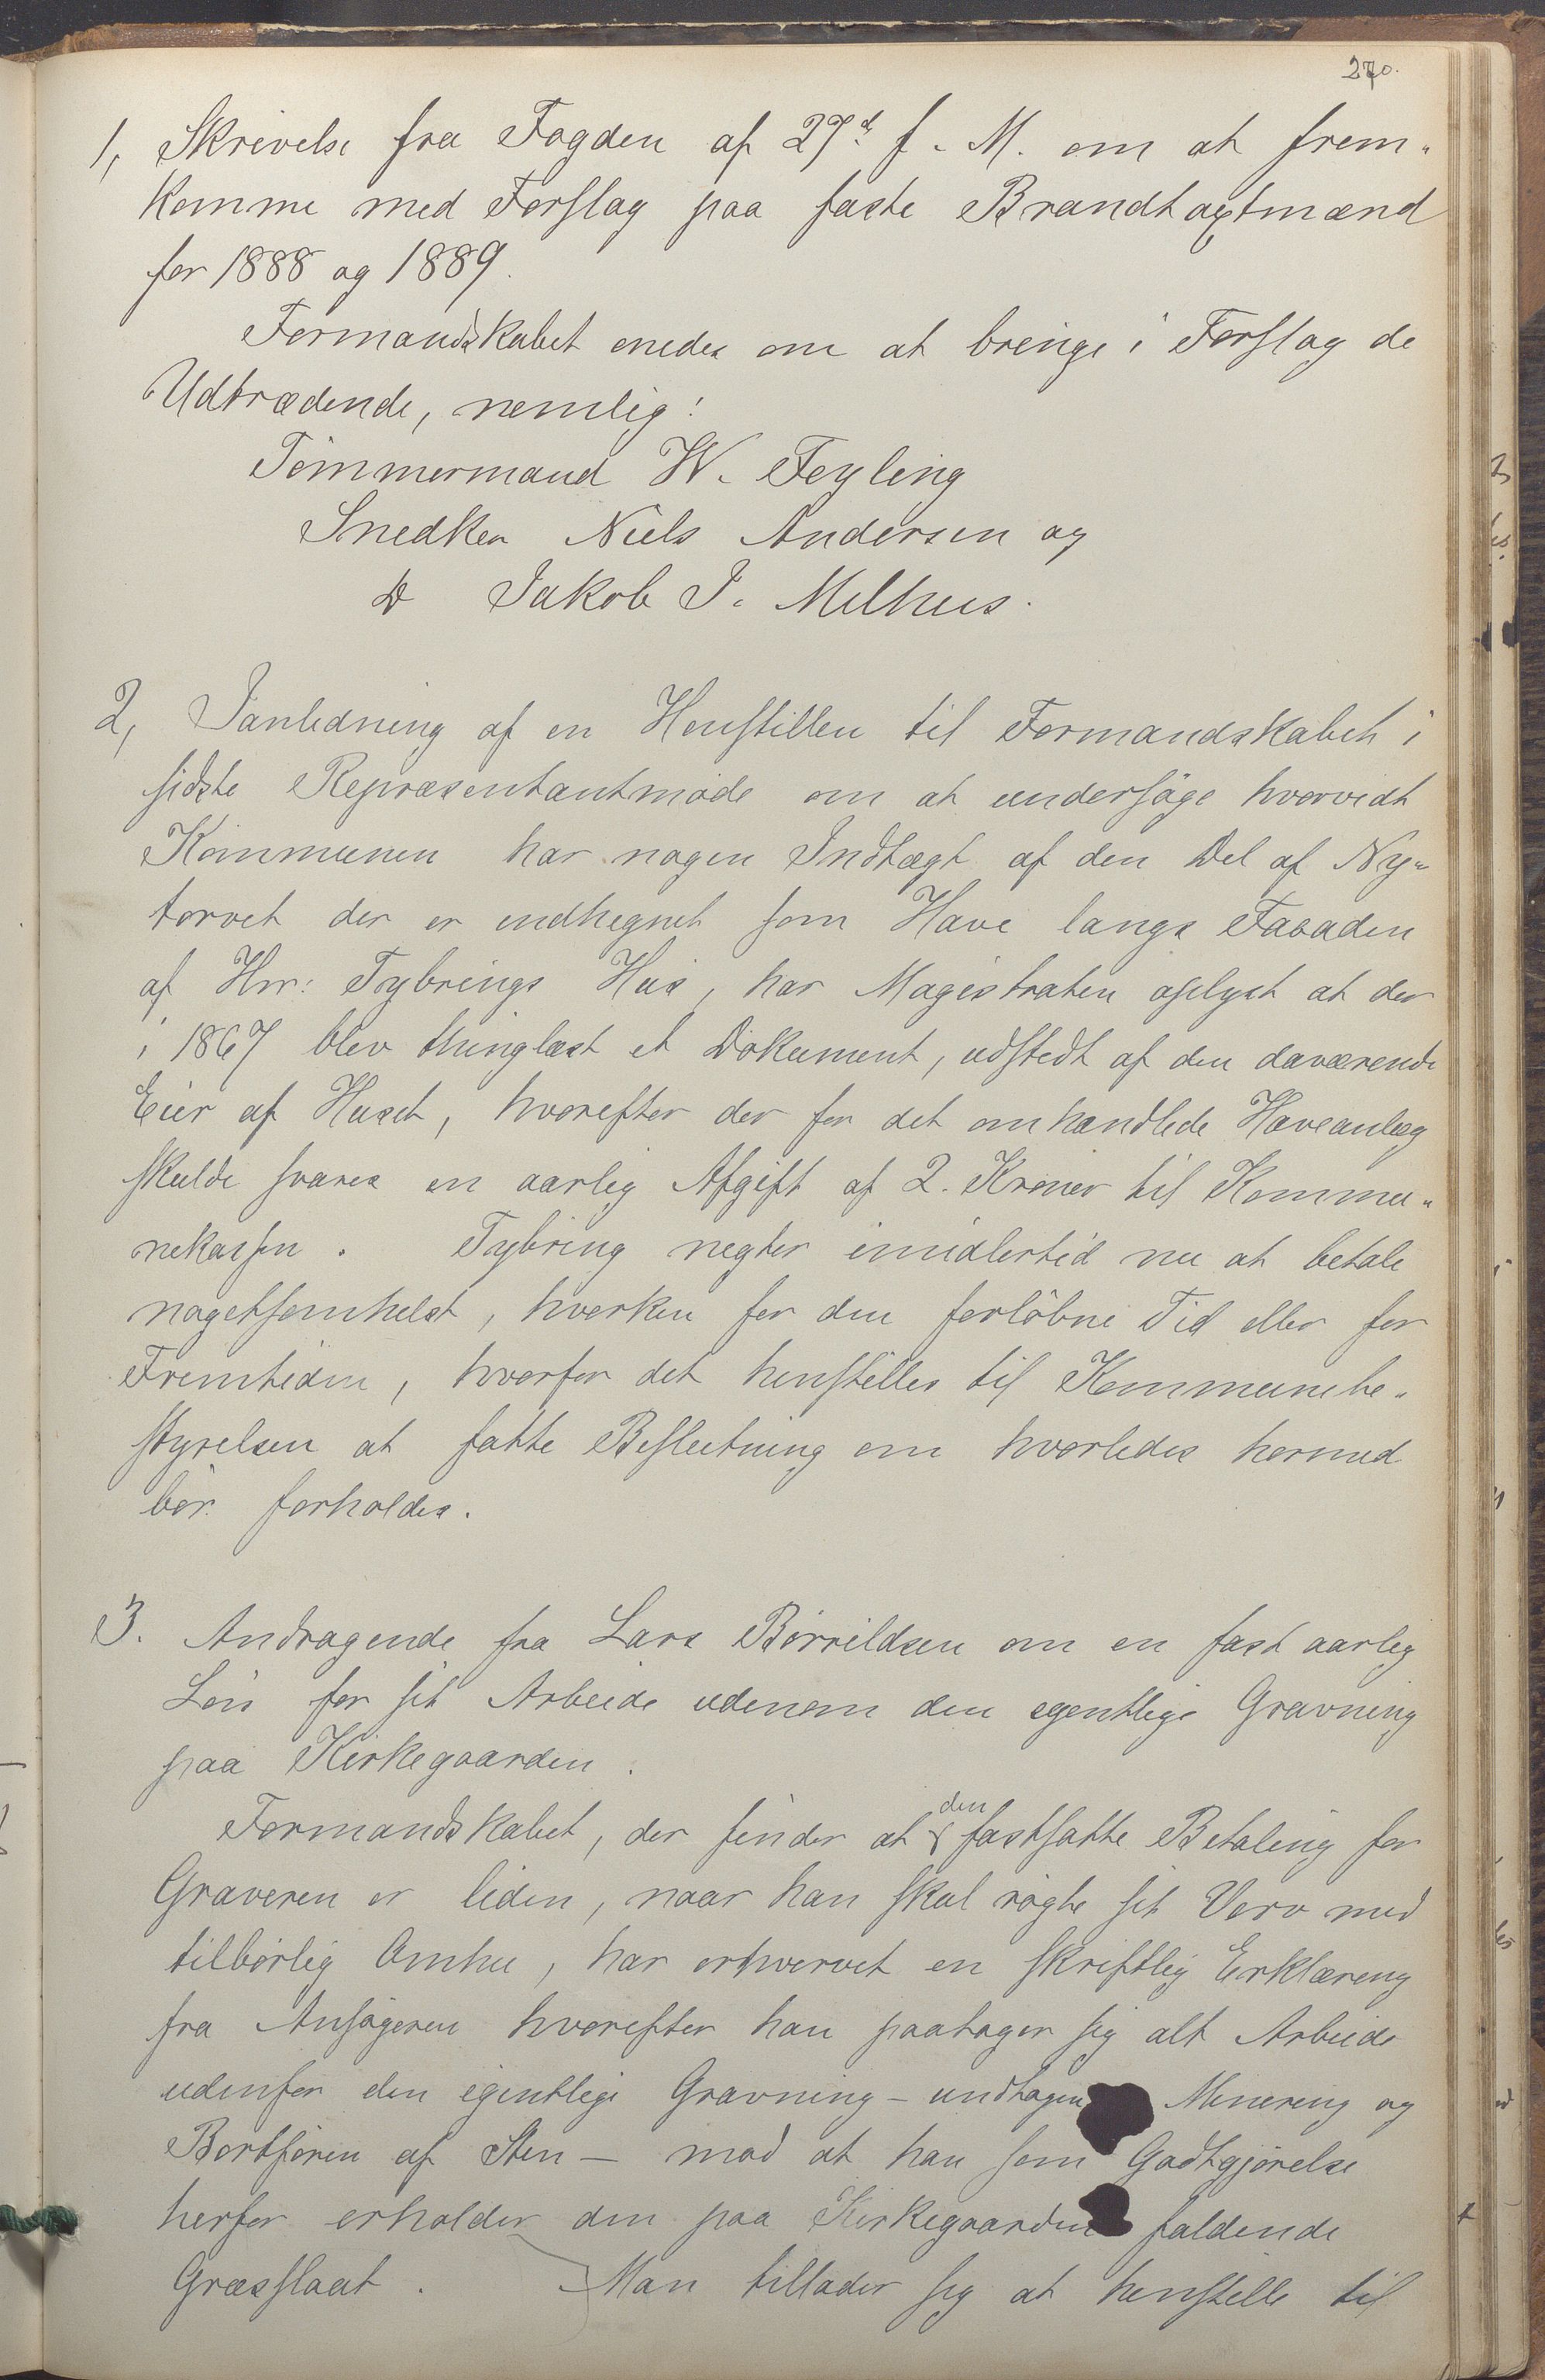 270.
1, Skrivelse fra Fogden af 27d. f. M. om at frem-
komme med Forslag paa faste Brandtagtmænd
for 1888 og 1889.
Formandskabet enedes om at bringe i Forslag de
Udtrædende, nemlig:
Tömmermand W. Feyling
Snedker Niels Andersen og
Do Jakob J. Melhus.
2, Ianledning af en Henstillen til Formandskabet i
sidste Repræsentantmöde om at undersöge hvorvidt
Kommunen har nogen Indtægt af den Del af Ny-
torvet der er indhegnet som Have langs Facaden
af Hrr: Tybrings Hus, har Magistraten oplyst at der
i 1867 blev thinglæst et Dokument, udstedt af den daværende
Eier af Huset, hvorefter der for det omhandlede Haveanlæg
skulde svares en aarlig Afgift af 2. Kroner til Kommu-
nekassen. Tybring negter imidlertid nu at betale
nogetsomhelst, hverken for den forlöbne Tid eller for
Fremtiden, hvorfor det henstilles til Kommunebe-
styrelsen at fatte Beslutning om hvorledes hermed
bör forholdes.
3. Andragende fra Lars Börrildsen om en fast aarlig
Lön for sit Arbeide udenom den egentlige Gravning
paa Kirkegaarden.
Formandskabet, der finder at den fastsatte Betaling for
Graveren er liden, naar han skal rögte sit Verv med
tilbörlig Omhu, har erhvervet en skriftlig Erklæring
fra Ansögeren hvorefter han paatager sig alt Arbeide
udenfor den egentlige Gravning - undtagen Minering og
Bortfören af Sten - mod at han som Godtgjörelse
herfor erholder den paa Kirkegaarden faldende
Græsslaat. Man tillader sig at henstille til